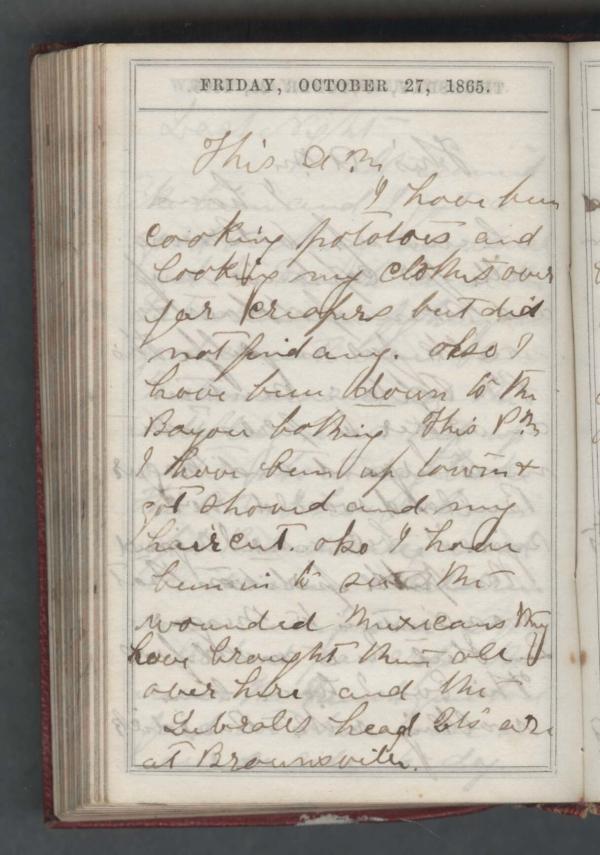 FRIDAY, OCTOBER 27, 1865.
This A.M.
I have been
cooking potatoes and
looking my clothes over
for creapers but did
not find any. also I
have been down to the
Bayou bathing This P.M
I have been up town &
got shaved and my
hair cut. also I have
been in to see the
wounded Mexicans they
have brought them all
over here and the
Leberales head Qts are
at Brownsville.